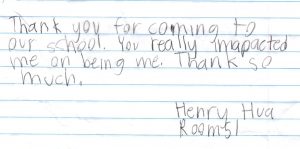 Thank you for coming to
our school. You really imapacted
me on being me. Thank so
much.
Henry Hua
Room 51